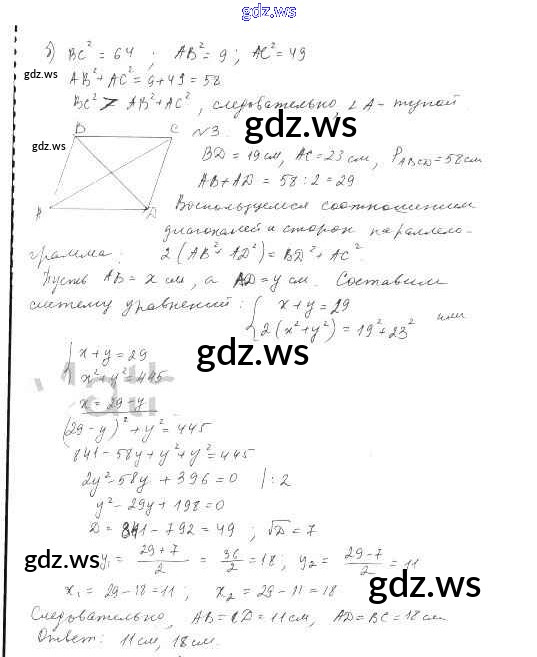 gdz.ws
б) BC² = 64 ; AB² = 9 ; AC² = 49
gdz.ws
AB² + AC² = 9 + 49 = 58
BC² > AB² + AC², следовательно, ∠A - тупой.
gdz.ws
N3.
B C
gdz.ws
A D
BD = 19 см, AC = 23 см, P ABCD = 58 см
AB + AD = 58 : 2 = 29
Воспользуемся соотношением
диагоналей и сторон параллело-
грамма: 2(AB² + AD²) = BD² + AC².
Пусть AB = x см, а AD = y см. Составим
систему уравнений: { x + y = 29
2(x² + y²) = 19² + 23² или
gdz.ws
{ x + y = 29
x² + y² = 445
x = 29 - y
(29 - y)² + y² = 445
841 - 58y + y² + y² = 445
2y² - 58y + 396 = 0 | : 2
y² - 29y + 198 = 0
D = 841 - 792 = 49 ; √D = 7
gdz.ws
y₁ = (29 + 7)/2 = 36/2 = 18 ; y₂ = (29 - 7)/2 = 11
gdz.ws
x₁ = 29 - 18 = 11 ; x₂ = 29 - 11 = 18
Следовательно, AB = CD = 11 см, AD = BC = 18 см
Ответ: 11 см, 18 см.
gdz.ws